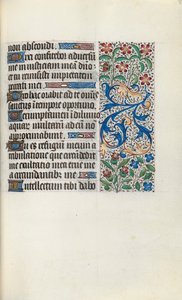 non abscondi.
Dixi confitebor adversum
me iniustitiam meam dno
et tu remisisti impietatem
peccati mei.
Pro hac orabit ad te omnis
sanctus in tempore oportuno.
Verumptamen in diluvio
aquarum multarum ad eum non
approximabunt.
Tu es refugium meum a
tribulatione que circumdedit
me exultatio mea erue me
a circumdantibus me.
Intellectum tibi dabo